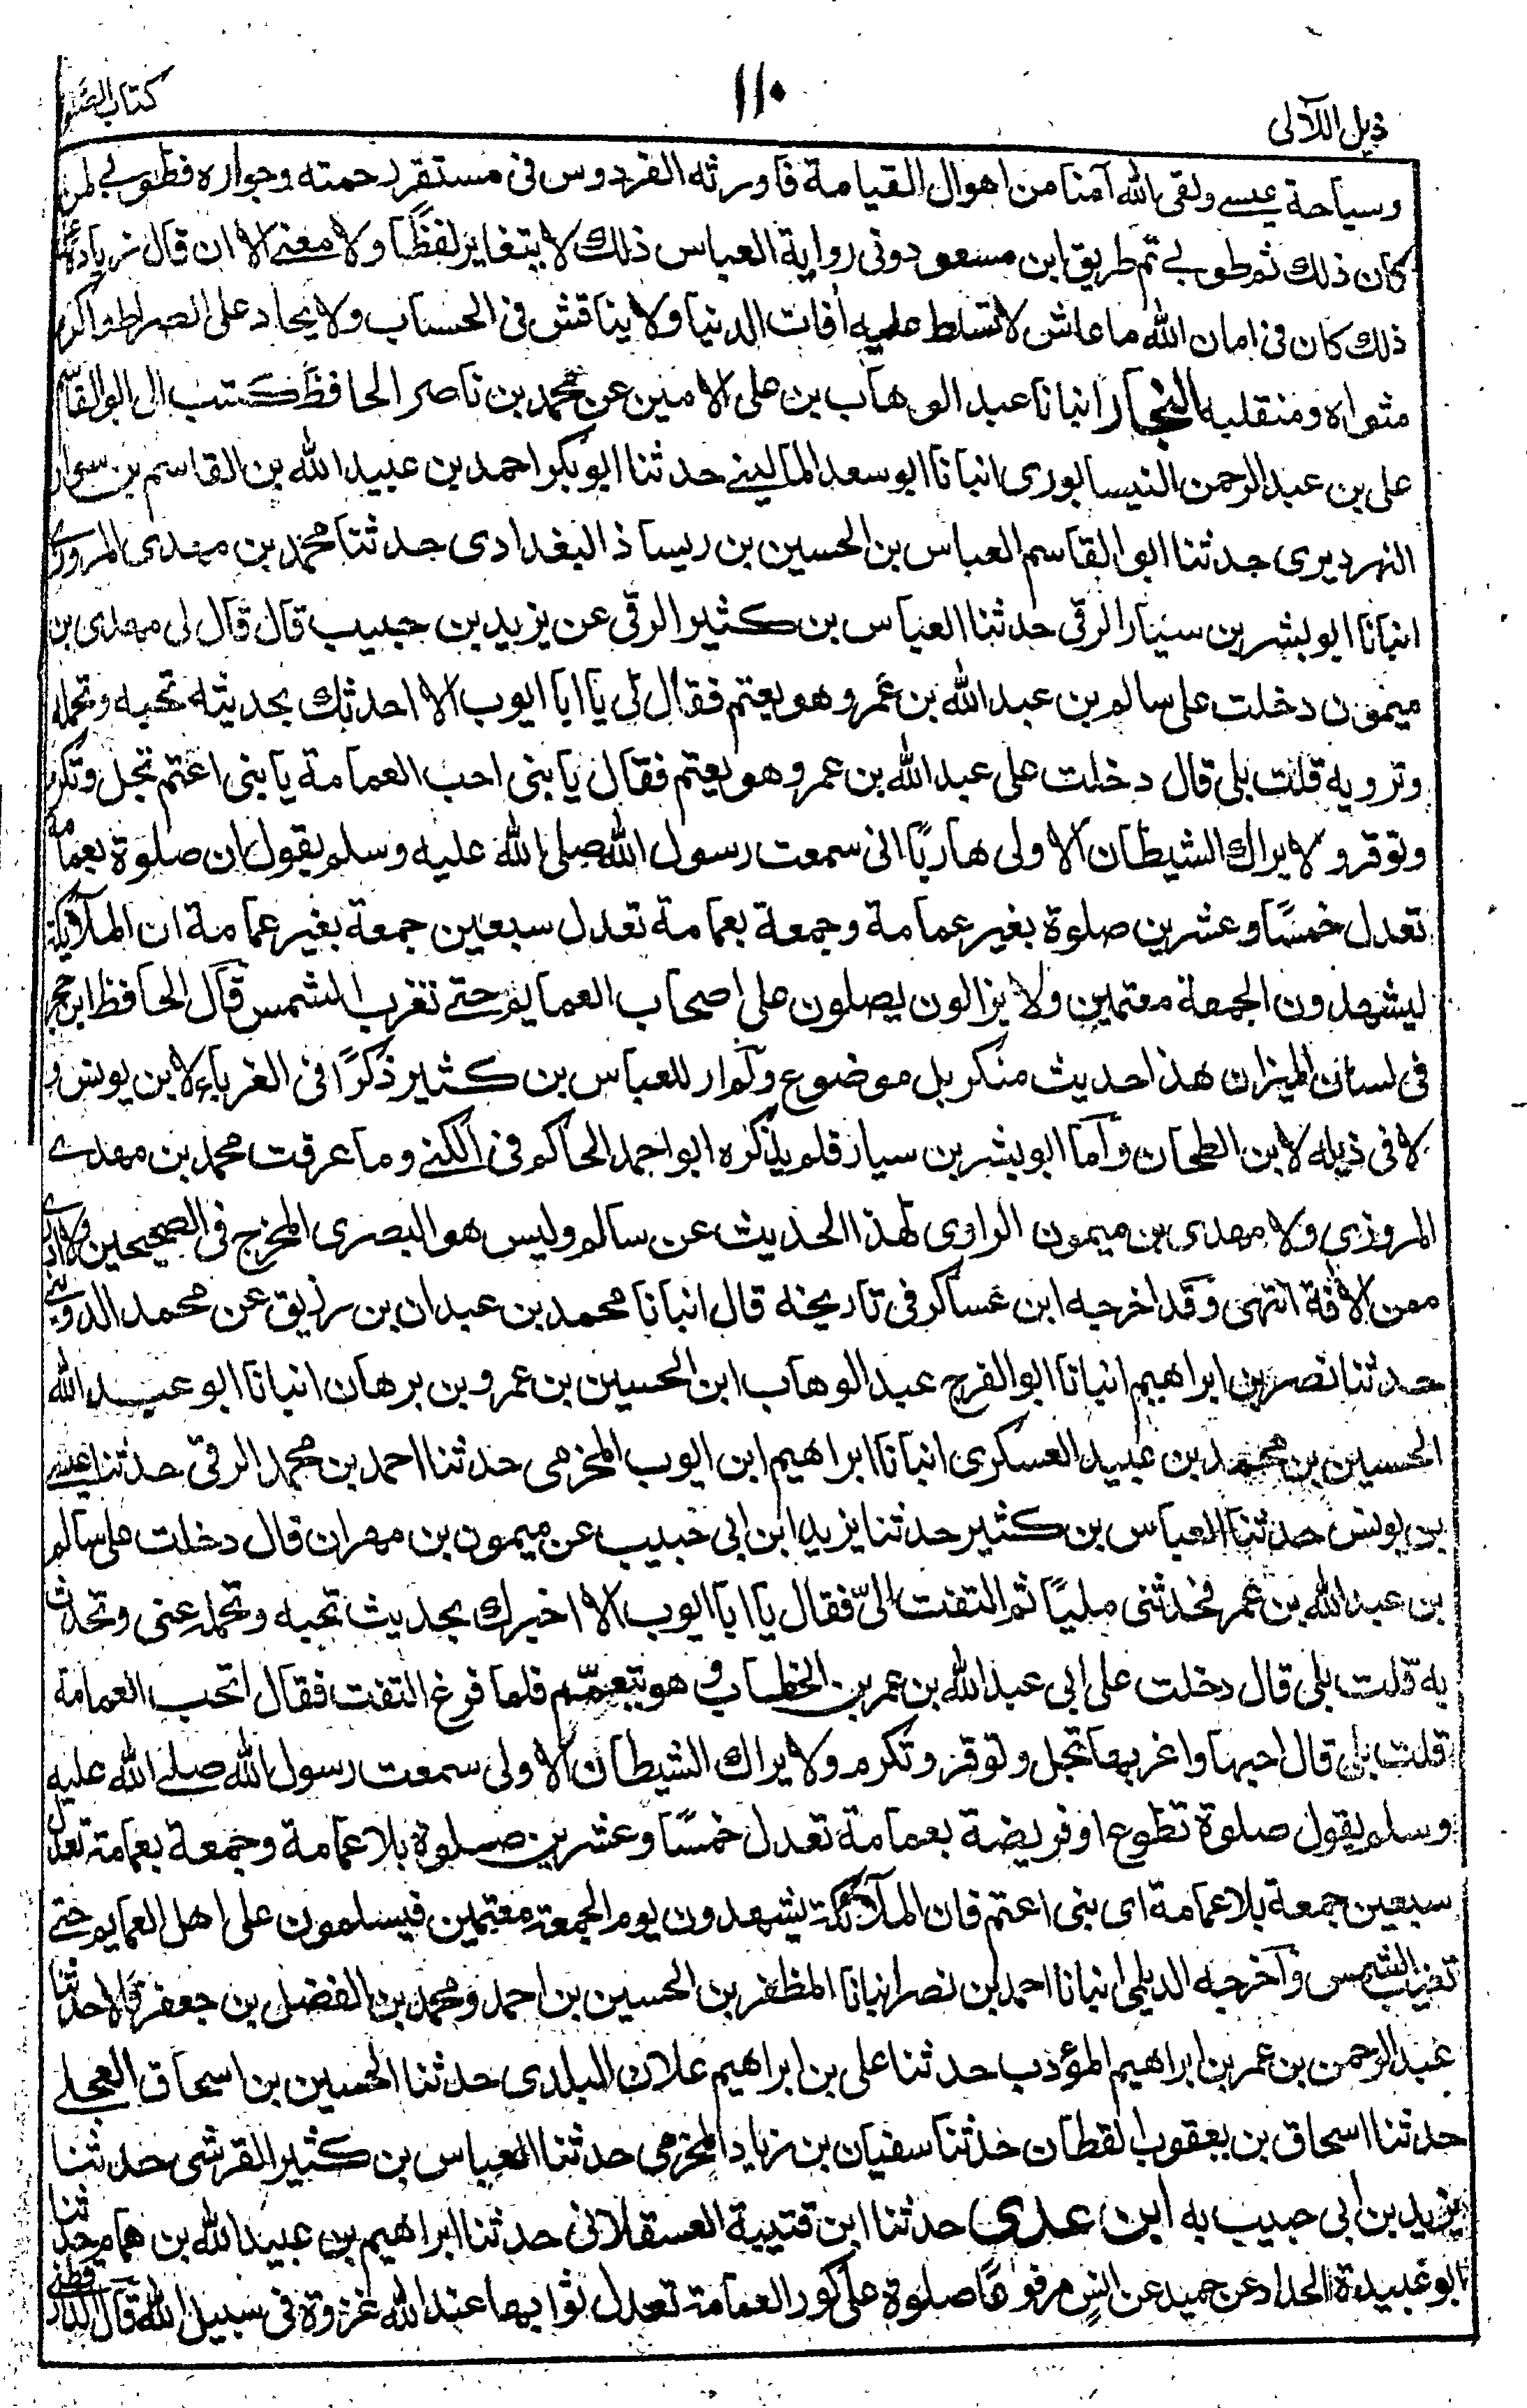 ذيل اللآلى
١١٠
كتاب الصلو
وسياحة عيسے ولقى الله آمنا من اهوال القيامة فاورثه الفردوس فى مستقر رحمته وجواره فطوبے لمن
كان ذلك ثم طوبے ثم طريق ابن مسعود وفى رواية العباس ذلك لا يتغاير لفظًا ولا معنے الا ان قال زيادة
ذلك كان فى امان الله ما عاش لا تسلط عليه افات الدنيا ولا يناقش فى الحساب ولا يحاد على الصراط واكرم
مثواه ومنقلبه النجار انبانا عبد الوهاب بن على الامين عن محمد بن ناصر الحافظ كتب الى ابو القاسم
على بن عبد الرحمن النيسابورى انبانا ابو سعد المالينے حدثنا ابو بكر احمد بن عبيد الله بن القاسم بن سوار
النهرديرى حدثنا ابو القاسم العباس بن الحسين بن ريساذ البغدادى حدثنا محمد بن مهدى المروزى
انبانا ابو بشر بن سيار الرقى حدثنا العباس بن كثير الرقى عن يزيد بن حبيب قال قال لى مهدى بن
ميمون دخلت على سالم بن عبد الله بن عمر وهو يعتم فقال لى يا ابا ايوب الا احدثك بحديثه تحبه وتحمله
وترويه قلت بلى قال دخلت على عبد الله بن عمر وهو يعتم فقال يا بنى احب العمامة يا بنى اعتم تجل وتكرم
وتوقر ولا يراك الشيطان الا ولى هاربًا انى سمعت رسول الله صلى الله عليه وسلم يقول ان صلوة بعمامة
تعدل خمسًا وعشرين صلوة بغير عمامة وجمعة بعمامة تعدل سبعين جمعة بغير عمامة ان الملآئكة
ليشهدون الجمعة معتمين ولا يزالون يصلون على اصحاب العمايم حتے تغرب الشمس قال الحافظ ابن حجر
فى لسان الميزان هذا حديث منكر بل موضوع ولم ار للعباس بن كثير ذكرًا فى الغرباء لابن يونس و
لا فى ذيله لابن الطحان واما ابو بشر بن سيار فلم يذكره ابو احمد الحاكم فى الكنے وما عرفت محمد بن مهدے
المروزي ولا مهدى بن ميمون الراوى لهذا الحديث عن سالم وليس هو البصرى المخرج فى الصحيحين ولا ادرى
ممن الافة انتهى وقد اخرجه ابن عساكر فى تاريخه قال انبانا محمد بن عبدان بن رزيق عن محمد الدوينے
حدثنا نصر بن ابراهيم انبانا ابو الفرج عبد الوهاب ابن الحسين بن عمرو بن برهان انبانا ابو عبد الله
الحسين بن محمد بن عبيد العسكرى انبانا ابراهيم ابن ايوب المخرمى حدثنا احمد بن محمد الرقى حدثنا عيسے
بن يونس حدثنا العباس بن كثير حدثنا يزيد ابن ابى حبيب عن ميمون بن مهران قال دخلت على سالم
بن عبد الله بن عمر فحدثنى مليًا ثم التفت الىّ فقال يا ابا ايوب الا اخبرك بحديث تحبه وتحمله عنى وتحدث
به قلت بلى قال دخلت على ابى عبد الله بن عمر بن الخطاب و هو يتعمّم فلما فرغ التفت فقال اتحب العمامة
قلت بلى قال احبها واغر بها تجل وتوقر وتكرم ولا يراك الشيطان الا ولى سمعت رسول الله صلے الله عليه
وسلم يقول صلوة تطوع او فريضة بعمامة تعدل خمسًا وعشرين صلوة بلا عمامة وجمعة بعمامة تعدل
سبعين جمعة بلا عمامة اى بنى اعتم فان الملآئكة يشهدون يوم الجمعة معتمين فيسلمون على اهل العمايم حتے
تغيب الشمس واخرجه الديلمى انبانا احمد بن نصر انبانا المظفر بن الحسين بن احمد ومحمد بن الفضل بن جعفر قالا حدثنا
عبد الرحمن بن عمر بن ابراهيم المؤدب حدثنا على بن ابراهيم علان البلدى حدثنا الحسين بن اسحاق العجلے
حدثنا اسحاق بن يعقوب القطان حدثنا سفيان بن زياد المخرمى حدثنا العباس بن كثير القرشى حدثنا
يزيد بن ابى حبيب به ابن عدى حدثنا ابن قتيبة العسقلانى حدثنا ابراهيم بن عبيد الله بن همام حدثنا
ابو عبيدة الحداد عن حميد عن انس مرفوعًا صلوة على كور العمامة تعدل ثوابها عند الله غزوة فى سبيل الله قال الدارقطنے